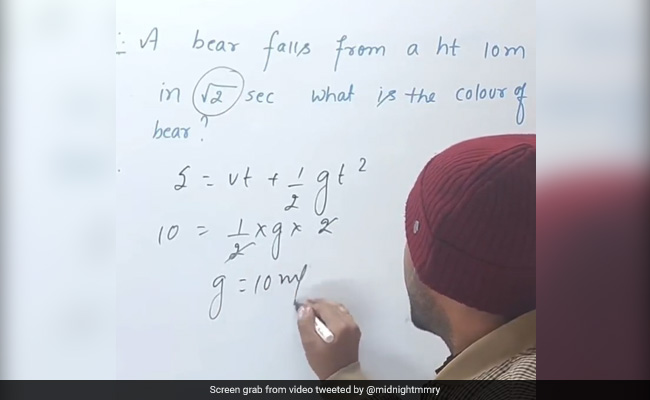 :- A bear falls from a ht 10m
in √2 sec what is the colour of
bear?
S = ut + 1/2 gt²
10 = 1/2 × g × 2
g = 10 m/
Screen grab from video tweeted by @midnightmmry